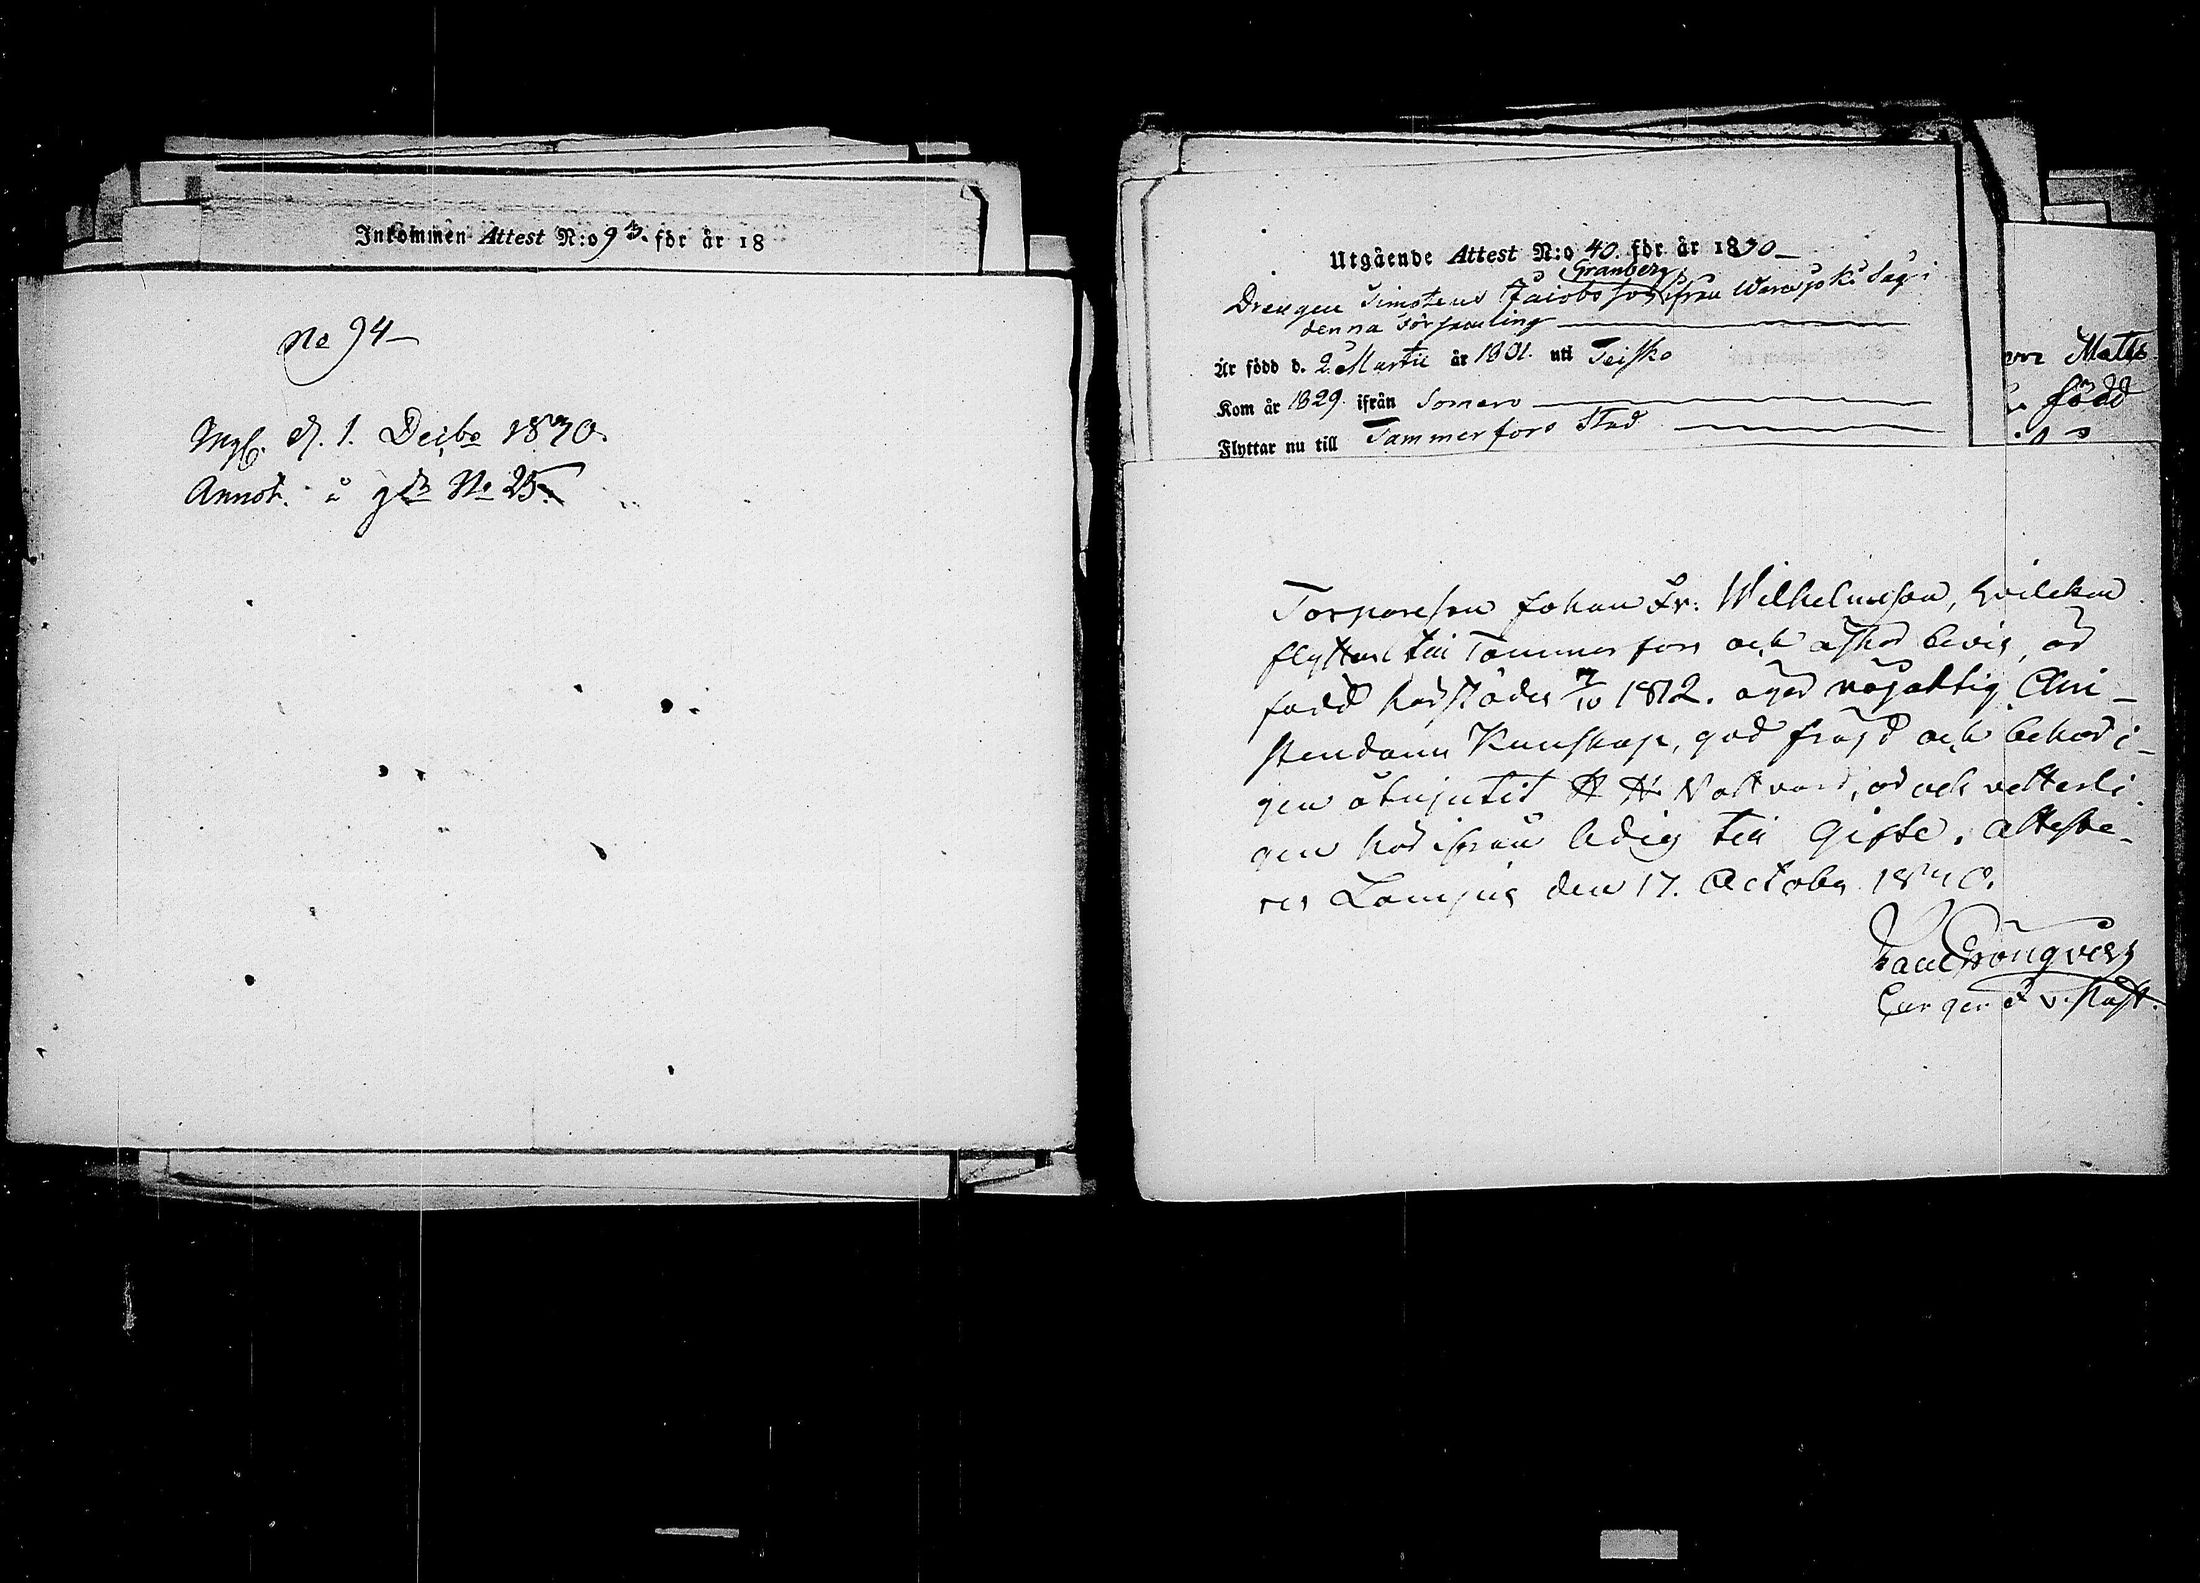 Inkommen Attest N:o 93. för år 18
No 94
Ingf. d. 1. Decbr 1830.
Annot. å No 25.
Utgående Attest N:o 40. för år 1830
Granberg
Drengen Timoteus Jacobsson ifrån i
denna Församling
Är född d. 2 Martii år 1801. uti Teisko
Kom år 1829. ifrån Somero
Flyttar nu till Tammerfors Stad
Matts
född
Torpareson Johan Fr: Wilhelmsson, hvilcken
flyttar till Tammerfors och äskar bevis, är
född härstädes 7/10 1812. äger nöjaktig Chri-
stendoms Kunskap, god fräjd och behöri-
gen åtnjutit H. H. Nattvard, är och vetterli-
gen härifrån ledig till Gifte. Atteste-
res Lampis den 17. October 1830.
Grönqvist